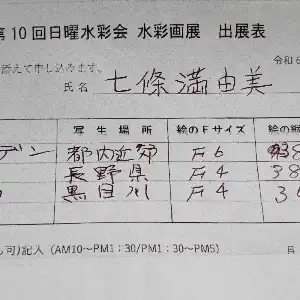 第10回日曜水彩会 水彩画展 出展表
添えて申し込みます。
令和6
氏名 七條満由美
写生場所 絵のFサイズ 絵の
デン 都内近郊 F6 38
長野県 F4 38
黒目川 F4 3
可)記入 (AM10~PM1:30/PM1:30~PM5)